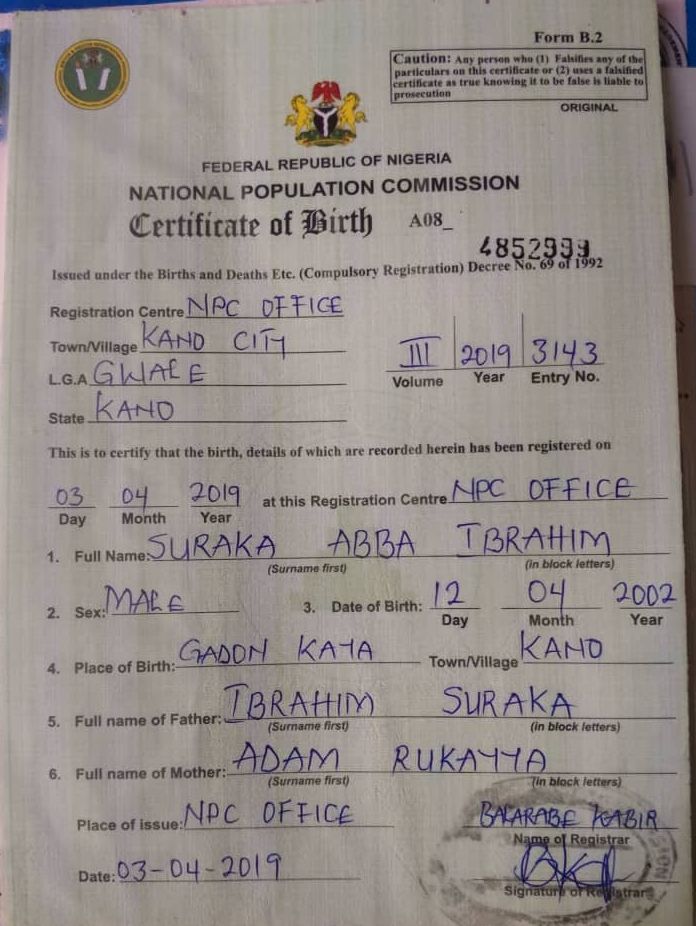 Form B.2
Caution: Any person who (1) Falsifies any of the
particulars on this certificate or (2) uses a falsified
certificate as true knowing it to be false is liable to
prosecution
ORIGINAL
FEDERAL REPUBLIC OF NIGERIA
NATIONAL POPULATION COMMISSION
Certificate of Birth A08_
4852999
Issued under the Births and Deaths Etc. (Compulsory Registration) Decree No. 69 of 1992
Registration Centre NPC OFFICE
Town/Village KANO CITY
III 2019 3143
L.G.A GWALE
Volume Year Entry No.
State KANO
This is to certify that the birth, details of which are recorded herein has been registered on
03 04 2019 at this Registration Centre NPC OFFICE
Day Month Year
1. Full Name: SURAKA ABBA IBRAHIM
(Surname first) (in block letters)
2. Sex: MALE 3. Date of Birth: 12 04 2002
Day Month Year
4. Place of Birth: GADON KAYA Town/Village KANO
5. Full name of Father: IBRAHIM SURAKA
(Surname first) (in block letters)
6. Full name of Mother: ADAM RUKAYYA
(Surname first) (in block letters)
Place of issue: NPC OFFICE BALARABE KABIR
Name of Registrar
Date: 03-04-2019
Signature of Registrar